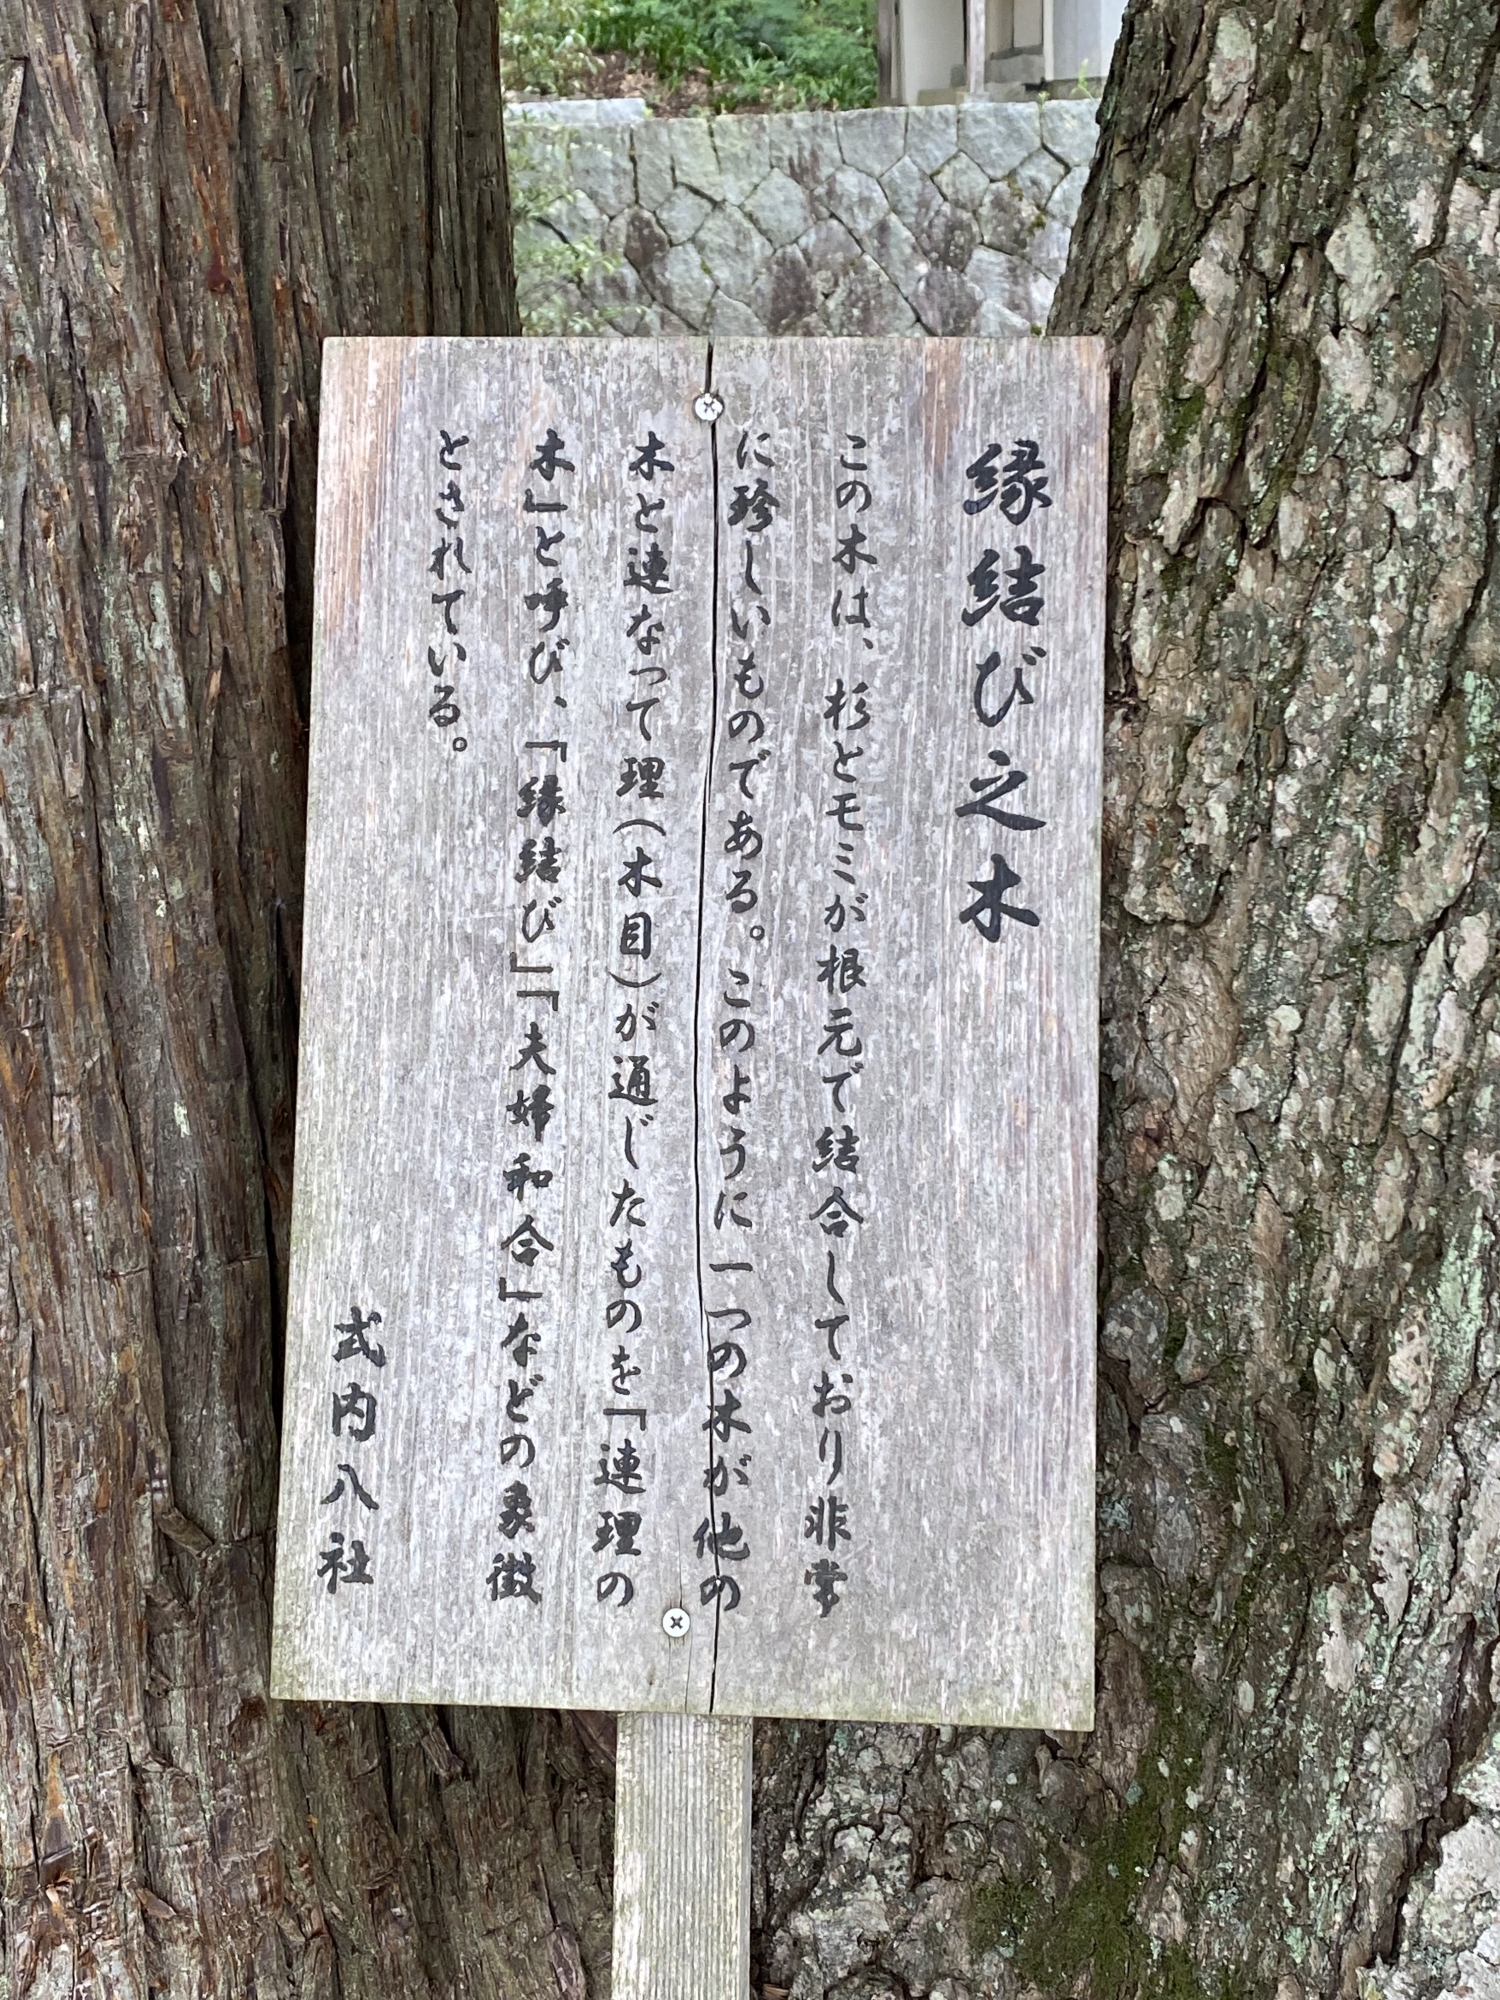 縁結び之木
この木は、杉とモミが根元で結合しており非常
に珍しいものである。このように一つの木が他の
木と連なって理(木目)が通じたものを「連理の
木」と呼び、「縁結び」「夫婦和合」などの象徴
とされている。
式内八社